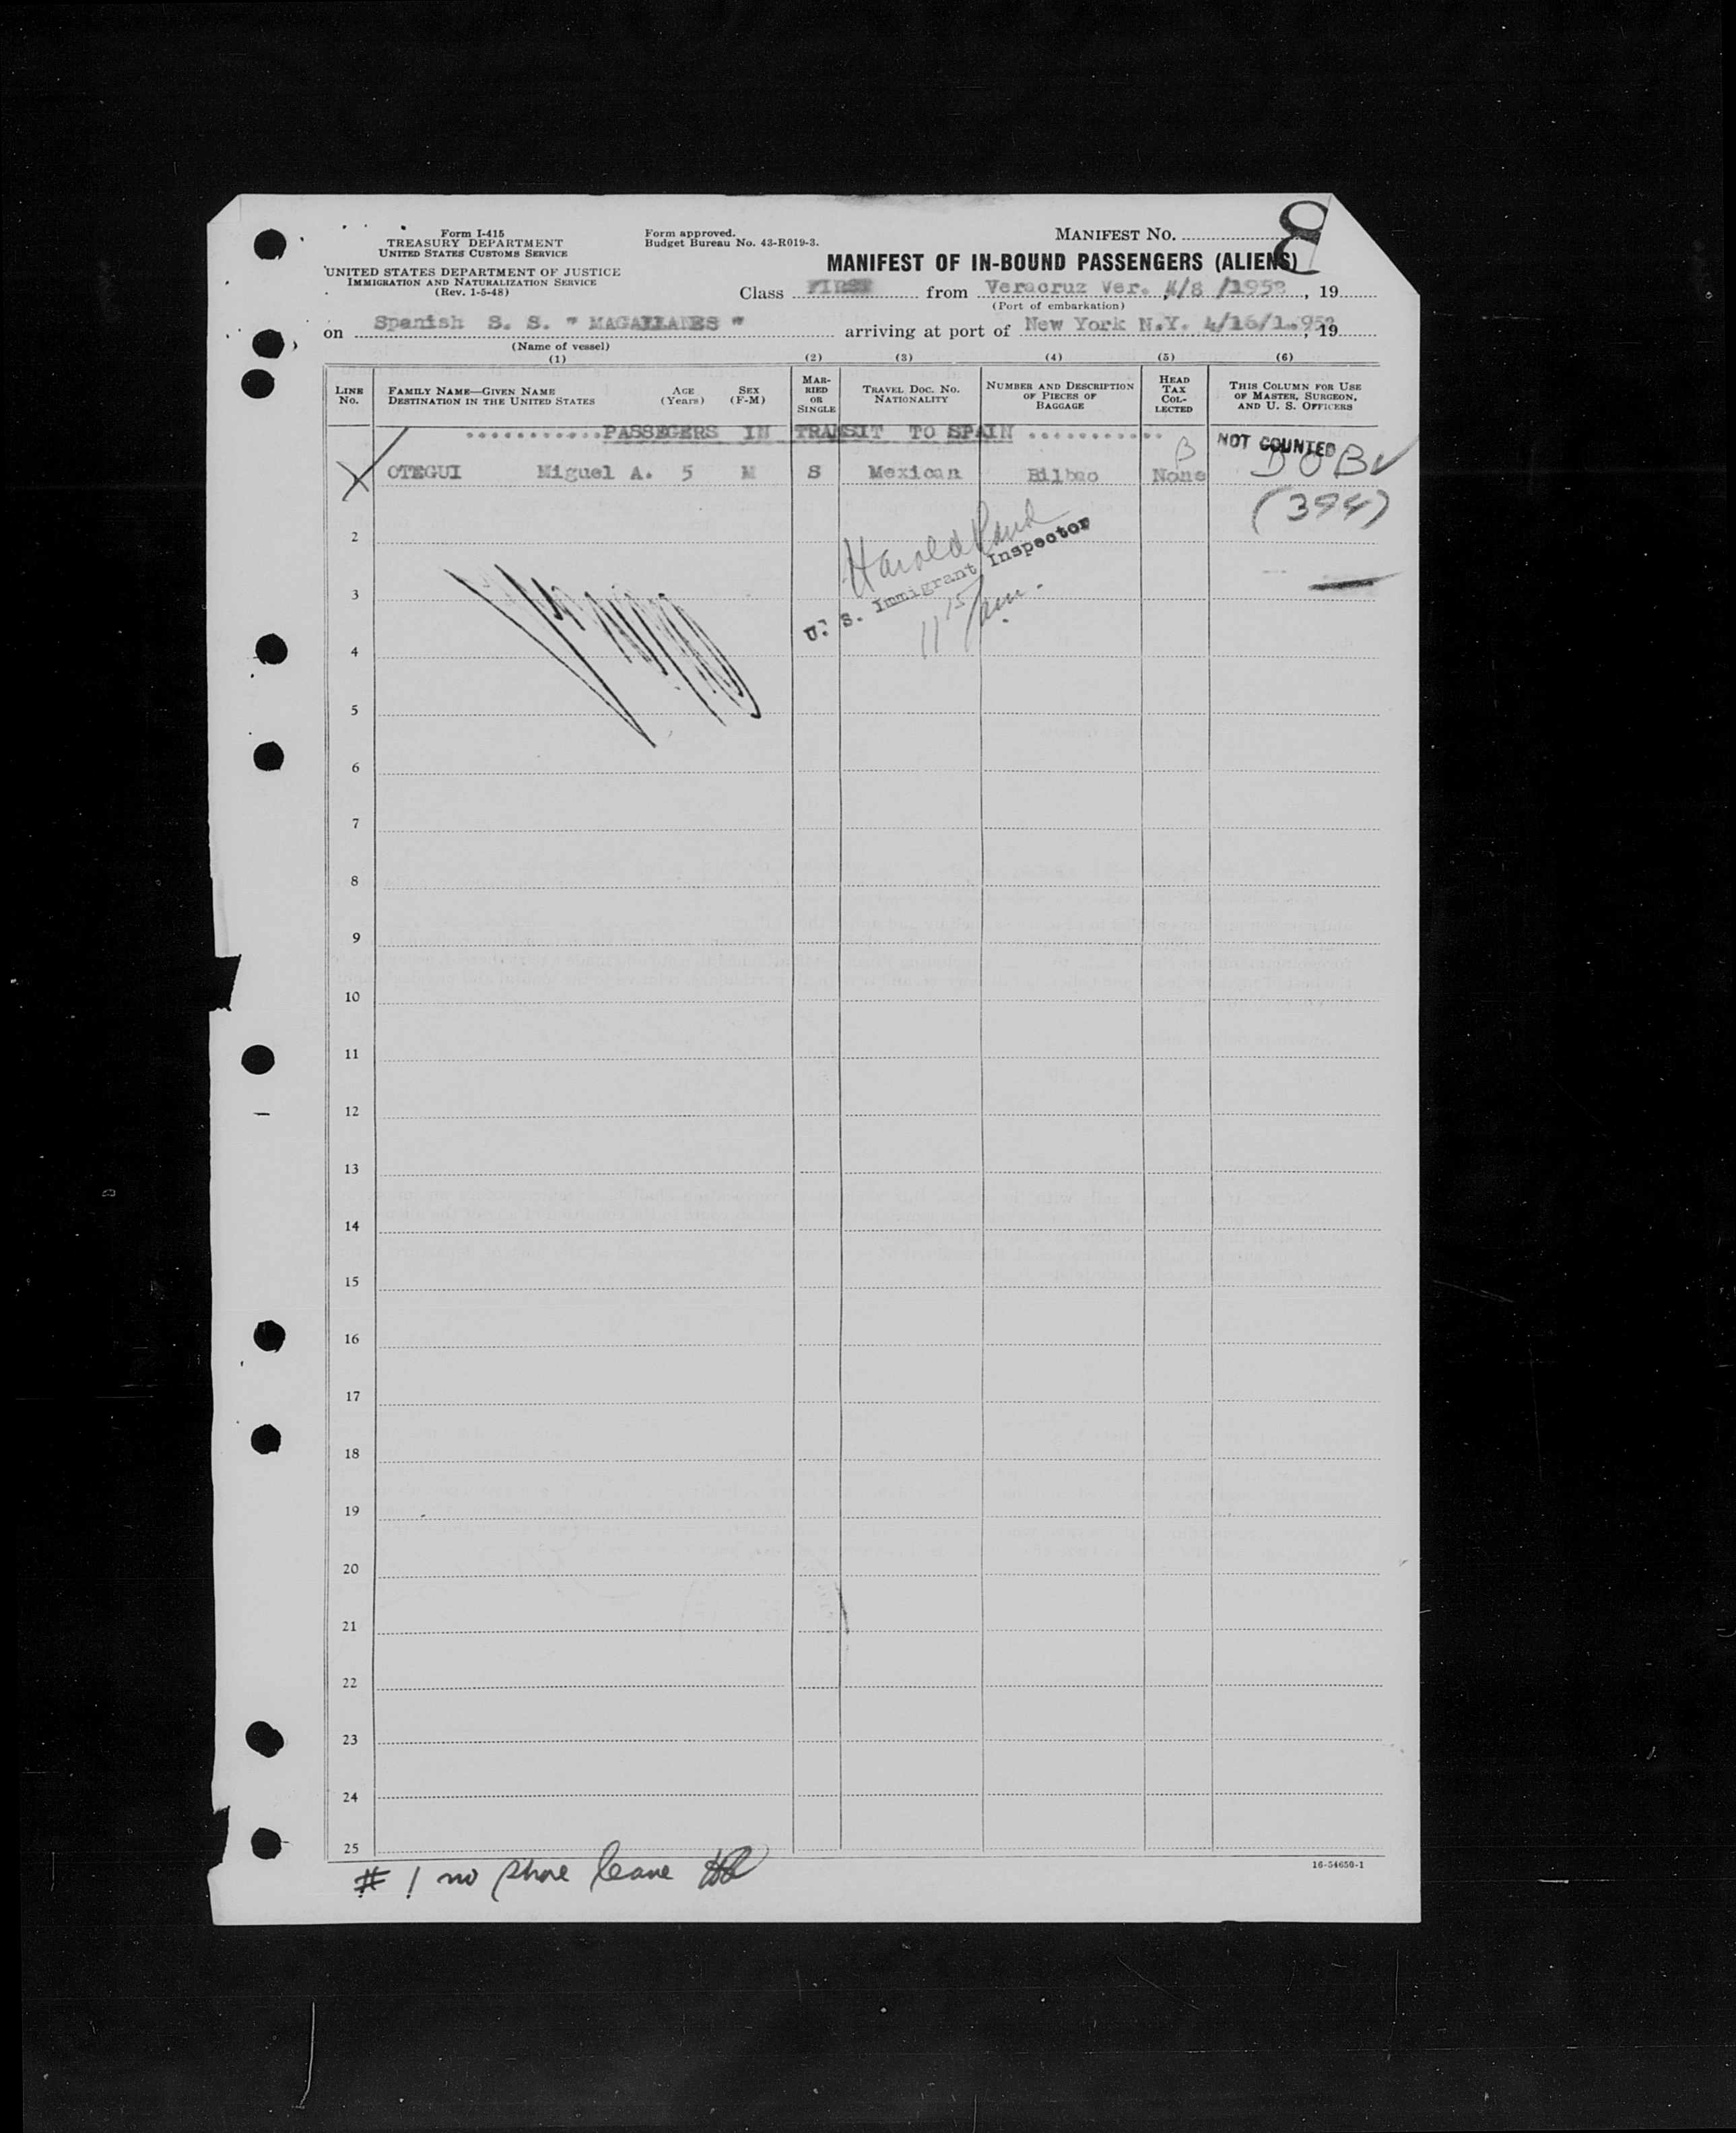 Form I-415
TREASURY DEPARTMENT
UNITED STATES CUSTOMS SERVICE
UNITED STATES DEPARTMENT OF JUSTICE
IMMIGRATION AND NATURALIZATION SERVICE
(Rev. 1-5-48)
Form approved.
Budget Bureau No. 43-R019-3.
MANIFEST No. 8
MANIFEST OF IN-BOUND PASSENGERS (ALIENS)
Class FIRST from Veracruz Ver. 4/8 /1952, 19
(Port of embarkation)
on Spanish S. S. " MAGALLANES " arriving at port of New York N.Y. 4/16/1.952, 19
(Name of vessel)
(1) (2) (3) (4) (5) (6)
LINE No. FAMILY NAME—GIVEN NAME DESTINATION IN THE UNITED STATES AGE (Years) SEX (F-M) MARRIED OR SINGLE TRAVEL DOC. No. NATIONALITY NUMBER AND DESCRIPTION OF PIECES OF BAGGAGE HEAD TAX COLLECTED THIS COLUMN FOR USE OF MASTER, SURGEON, AND U. S. OFFICERS
...........PASSEGERS IN TRANSIT TO SPAIN ...........
B NOT COUNTED
OTEGUI Miguel A. 5 M S Mexican Bilbao None D O B
2
Harold
U. S. Immigrant Inspector
11 15 am.
3
4
5
6
7
8
9
10
11
12
13
14
15
16
17
18
19
20
21
22
23
24
25
# 1 no shore leave
16-54650-1